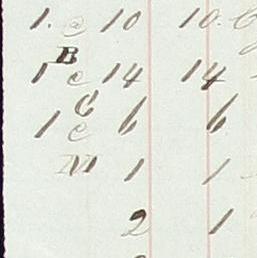 1. @ 10 10.
B
1 @ 14 14
C
1 @ 6 6
M 1 1
2 1